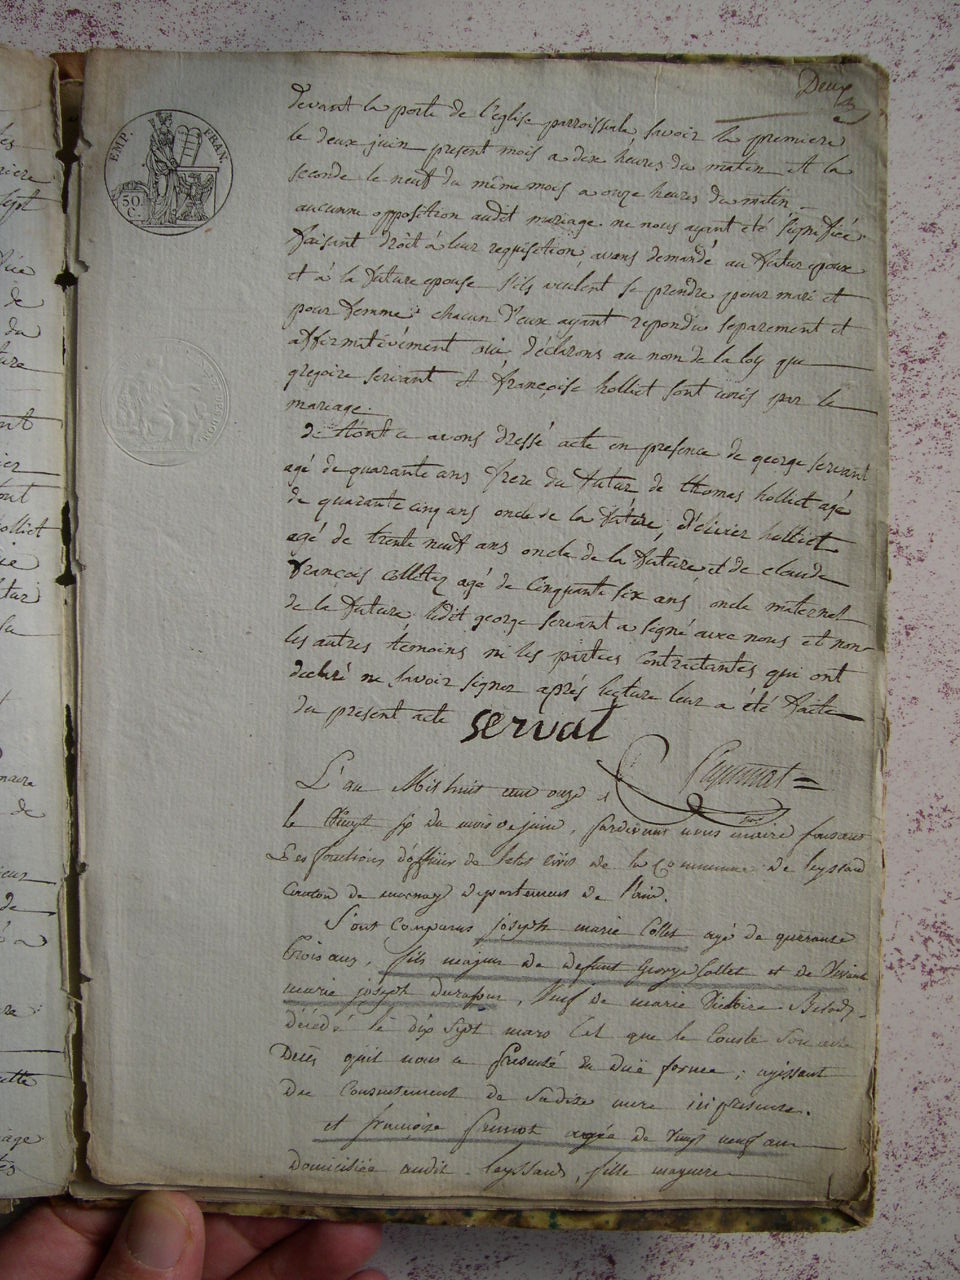 Deux
EMP. FRAN.
50. C.
devant la porte de l'eglise parroissiale savoir la premiere
le deux juin present mois a dix heures du matin et la
seconde le neuf du même mois a onze heures du matin
aucunne opposition audit mariage ne nous ayant été signifiée
faisant droit à leur requisition, avons demandé au futur epoux
et à la future epouse s'ils veulent se prendre pour mari et
pour femme: chacun d'eux ayant repondu separement et
affirmativément oui déclarons au nom de la loy que
gregoire servant et françoise holliet sont unis par le
mariage.
de tout ce avons dressé acte en presence de george servant
agé de quarante ans frere du futur de thomas holliet agé
de quarante cinq ans oncle de la future, d'olivier holliet
agé de trente neuf ans oncle de la future et de claude
françois colletaz agé de cinquante six ans oncle maternel
de la future. ledit george servant a signé avec nous et non
les autres témoins ni les parties contractantes qui ont
declaré ne savoir signer après lecture leur a été faite
du present acte servat
L'an Mil huit cent onze
le vingt six du mois de juin, pardevant nous maire faisant
les fonctions d'officier de letat civil de la Commune de leyssard
Canton de departement de l'ain.
Sont comparus joseph marie Collet agé de quarante
trois ans, fils majeur de defunt George Collet et de vivante
marie joseph durafour, veuf de marie victoire
décédé le dix sept mars tel que le Conste son acte
Decès qu'il nous a presenté en due forme; agissant
du Consentement de sadite mere ici presente.
et françoise agée de vingt neuf ans
domiciliée audit leyssard, fille majeure